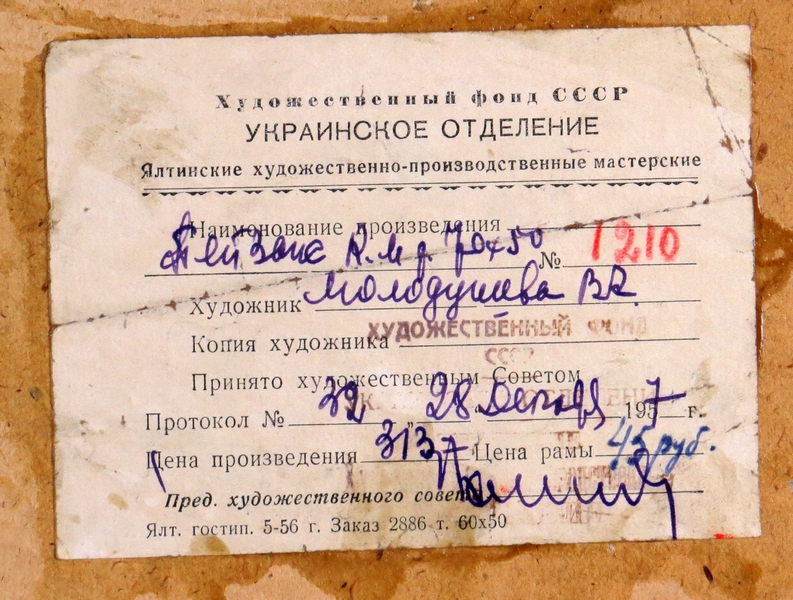 Художественный фонд СССР
УКРАИНСКОЕ ОТДЕЛЕНИЕ
Ялтинские художественно-производственные мастерские
Наименование произведения
Пейзаж К.М р. 70х50 № 1210
Художник Молодушева В
Копия художника
ХУДОЖЕСТВЕННЫЙ ФОНД
СССР
Принято художественным Советом
Протокол № 32 „28 1957 г.
Цена произведения 313 Цена рамы 45 руб.
Пред. художественного совета
Ялт. гостип. 5-56 г. Заказ 2886 т. 60х50